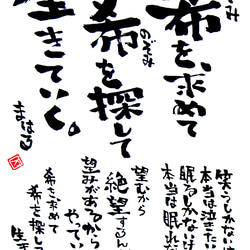 希を、求めて
希を探して
生きていく。
まはる
笑うしかな
本当は泣きた
眠るしかな
本当は眠れ
望むから
絶望するん
望みがあるから
やってい
希を求めて
希を探して
生き